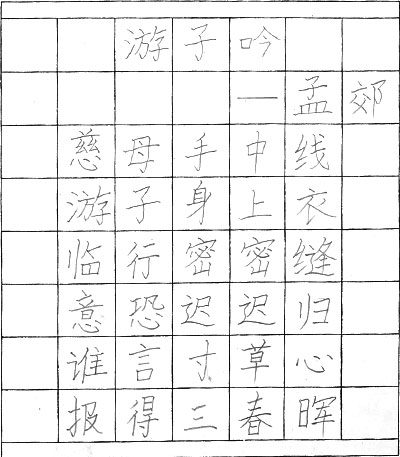 游子吟
—孟郊
慈母手中线
游子身上衣
临行密密缝
意恐迟迟归
谁言寸草心
报得三春晖